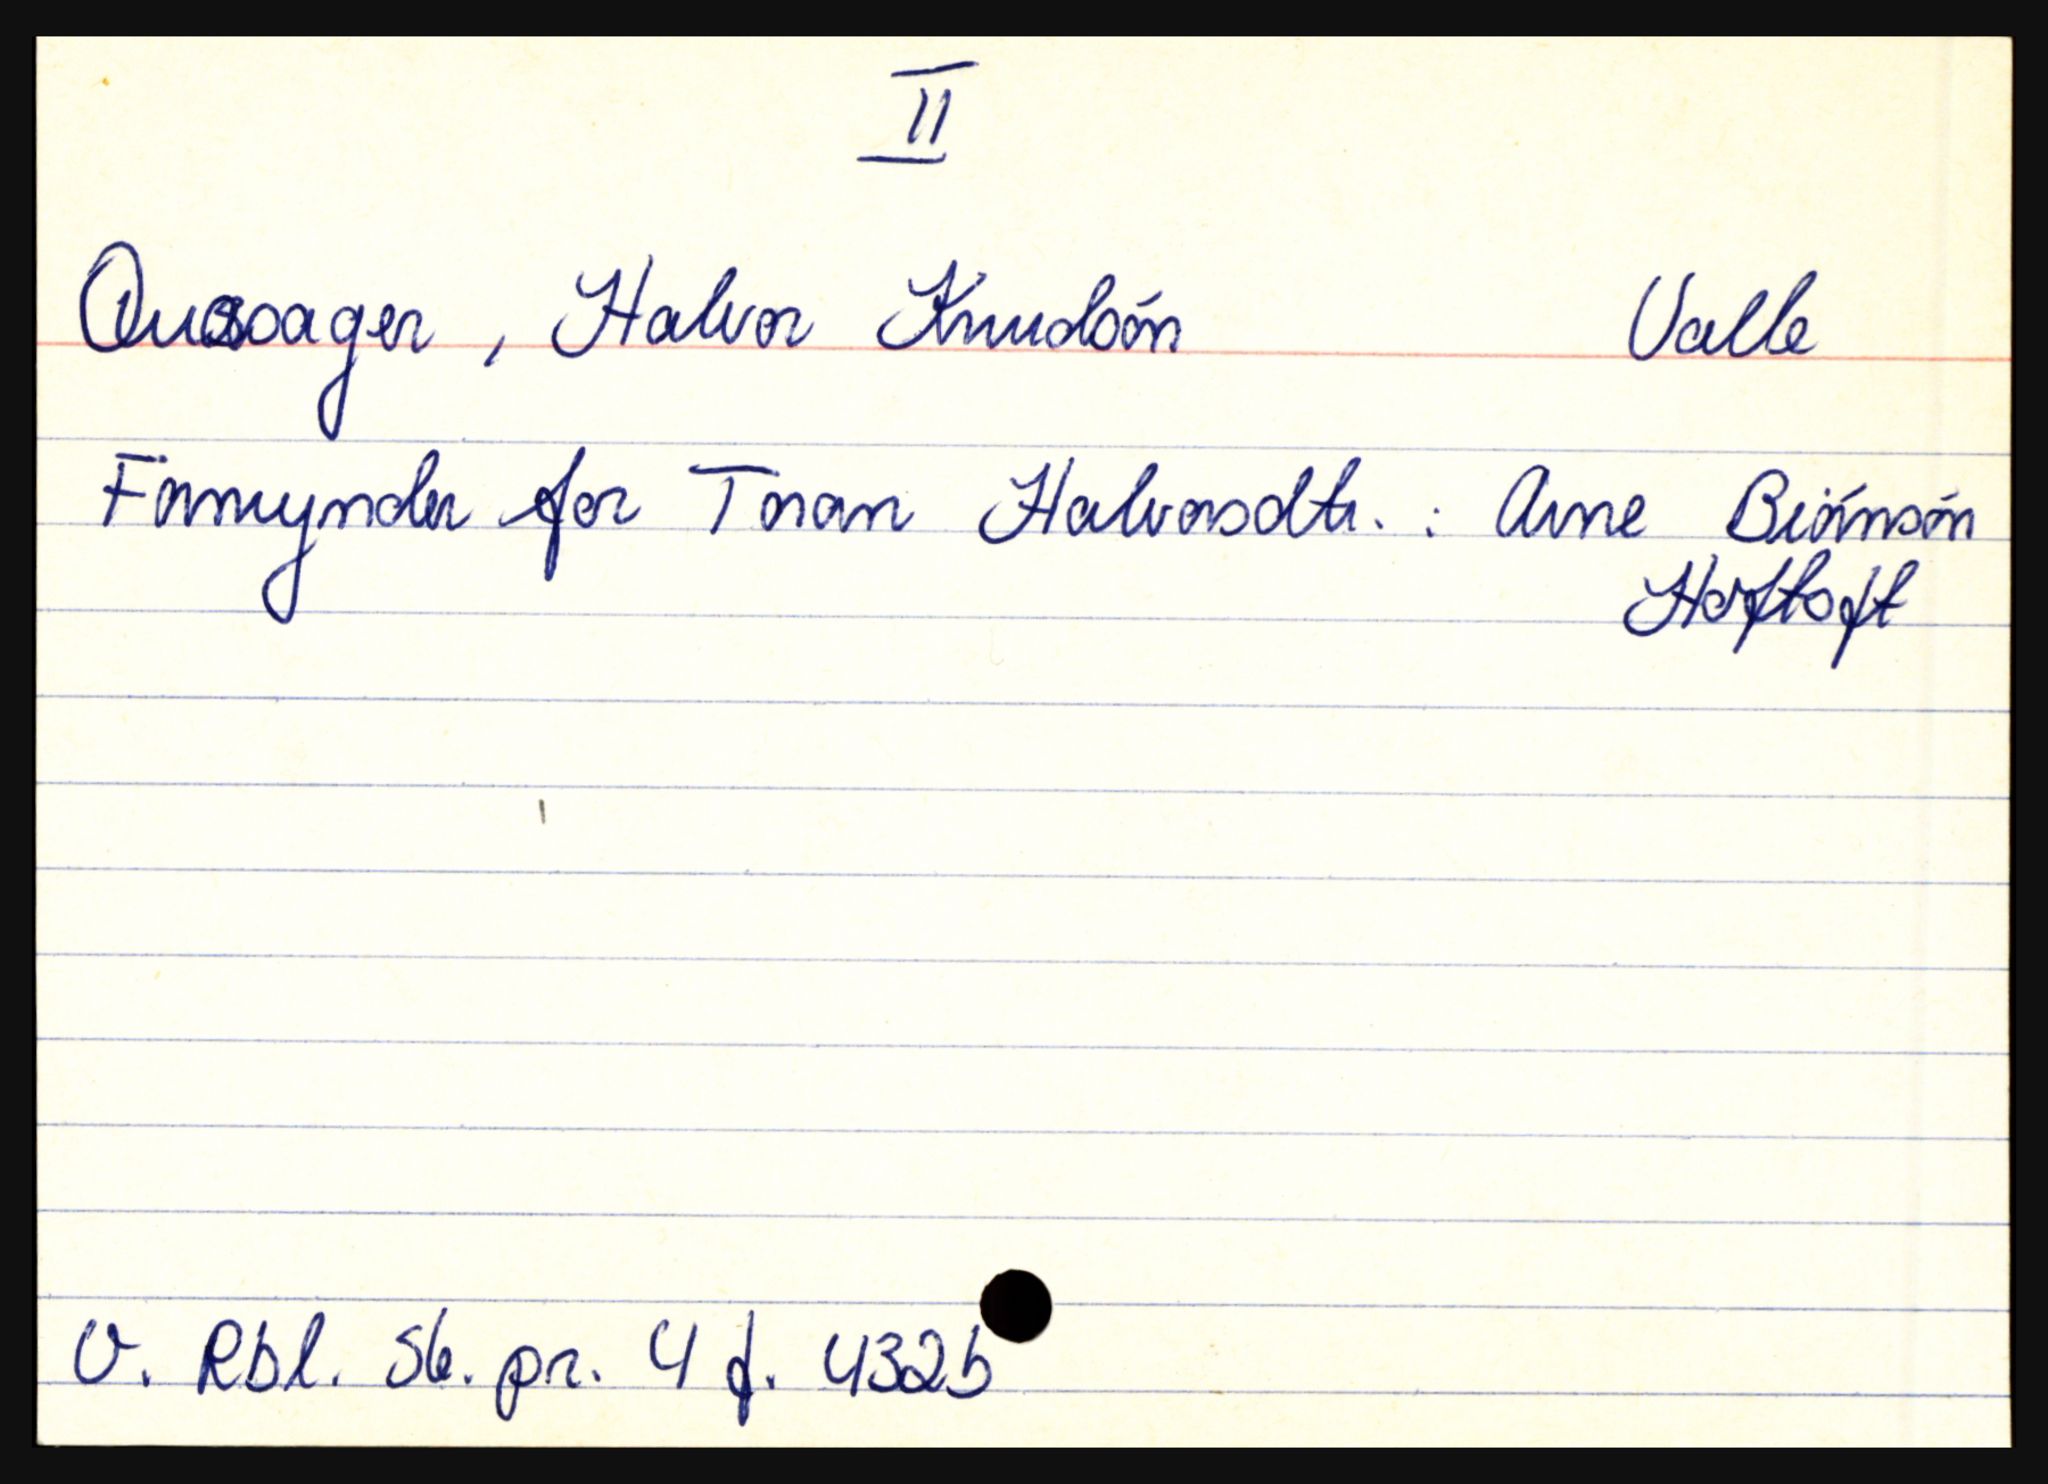 II
Quasoager, Halvor Knudsón Valle
Formynder for Toran Halvorsdtr.: Arne Biórnsón
Hoftoft
V. Rbl. Sk. pr. 4 f. 432b